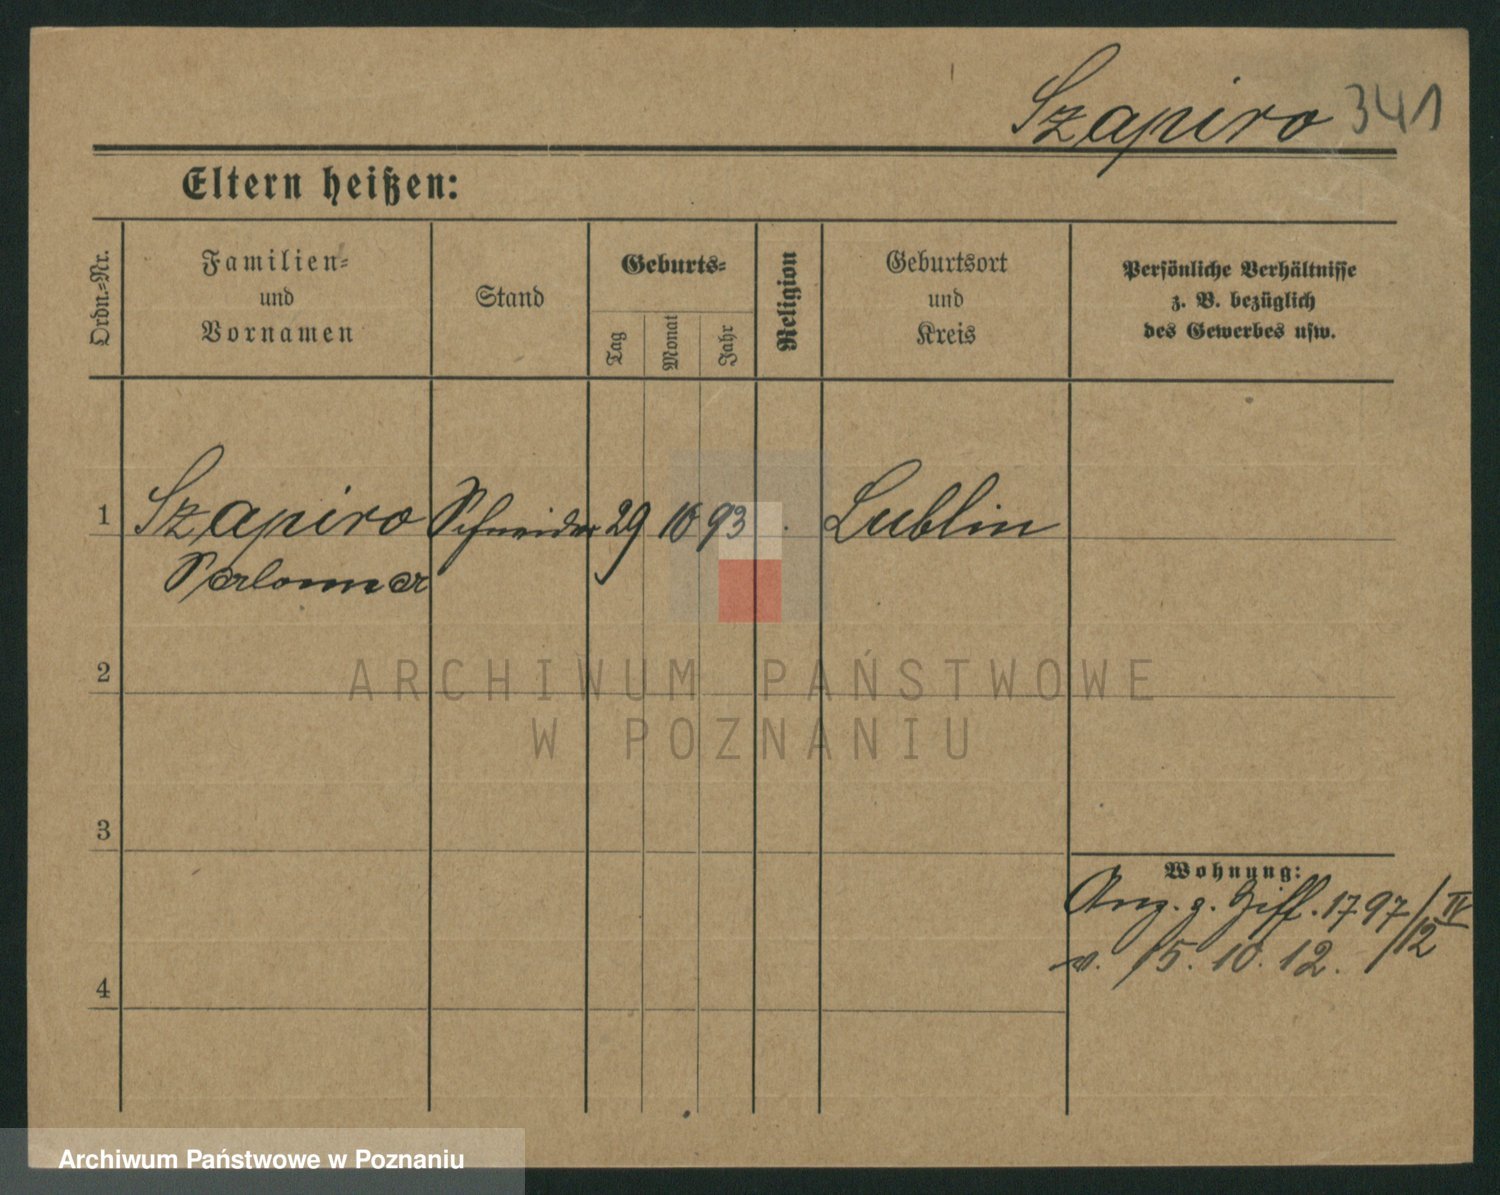 Szapiro 341
Eltern heißen:
Ordn.-Nr.
Familien-
und
Vornamen
Stand
Geburts-
Tag
Monat
Jahr
Religion
Geburtsort
und
Kreis
Persönliche Verhältnisse
z. B. bezüglich
des Gewerbes usw.
1 Szapiro Schneider 29 10 93 . Lublin
2
ARCHIWUM PAŃSTWOWE
W POZNANIU
3
Wohnung:
Ang. g. Ziff. 1797/IV
v. 15. 10. 12. /12
4
Archiwum Państwowe w Poznaniu